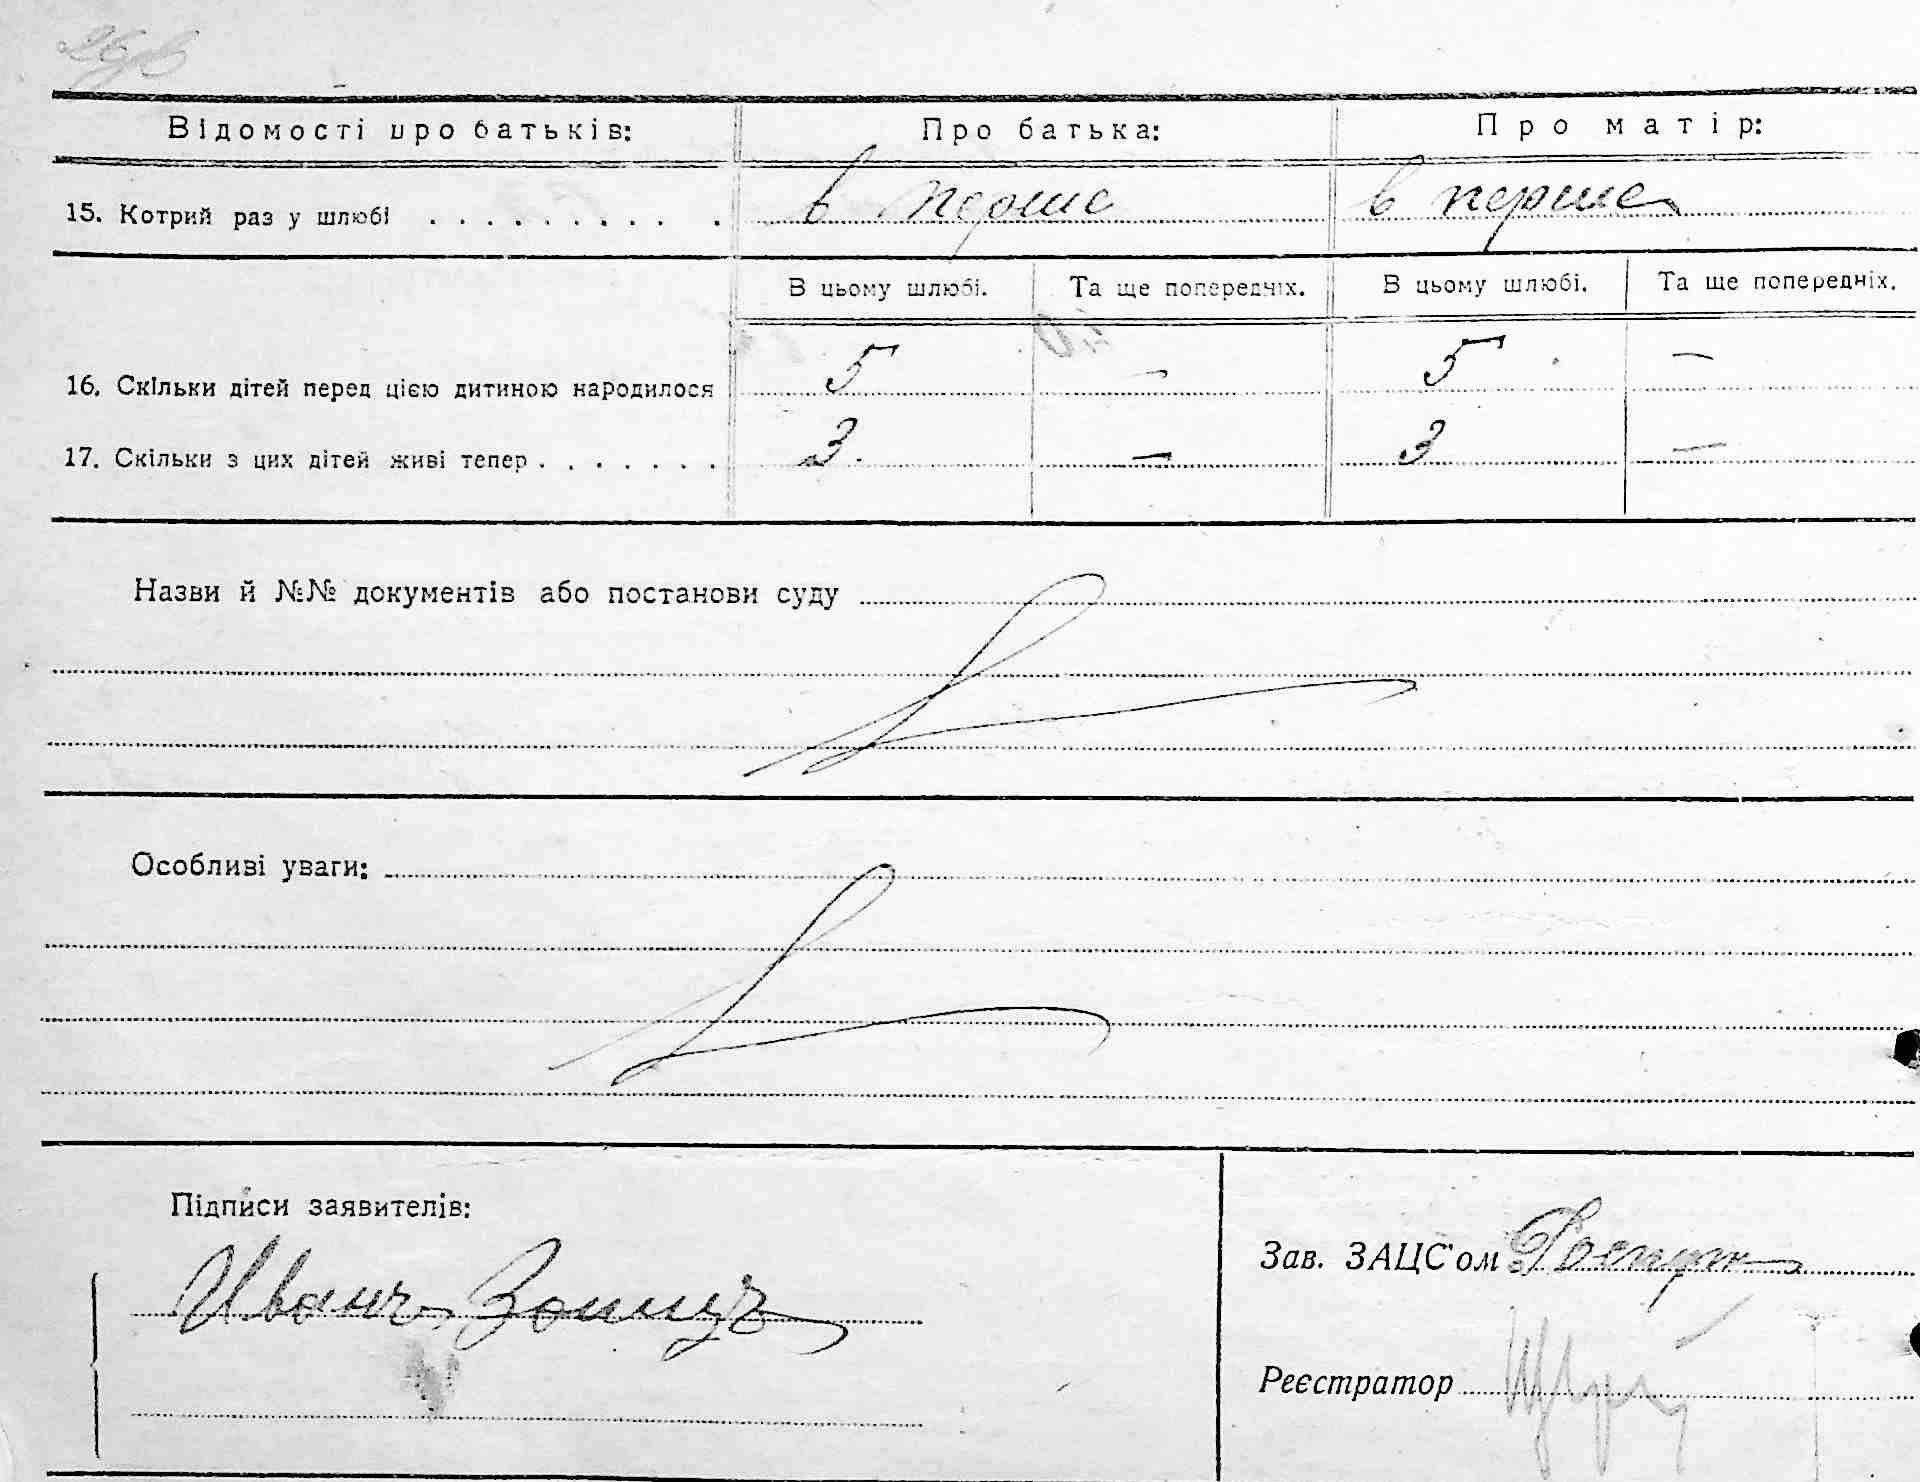 Відомості про батьків: Про батька: Про матір:
15. Котрий раз у шлюбі . . . . . . . . . . в перше в перше
В цьому шлюбі. Та ще попередніх. В цьому шлюбі. Та ще попередніх.
16. Скільки дітей перед цією дитиною народилося 5 — 5 —
17. Скільки з цих дітей живі тепер . . . . . . . 3 — 3 —
Назви й №№ документів або постанови суду
Особливі уваги:
Підписи заявителів:
Иванъ
Зав. ЗАЦС'ом
Реєстратор